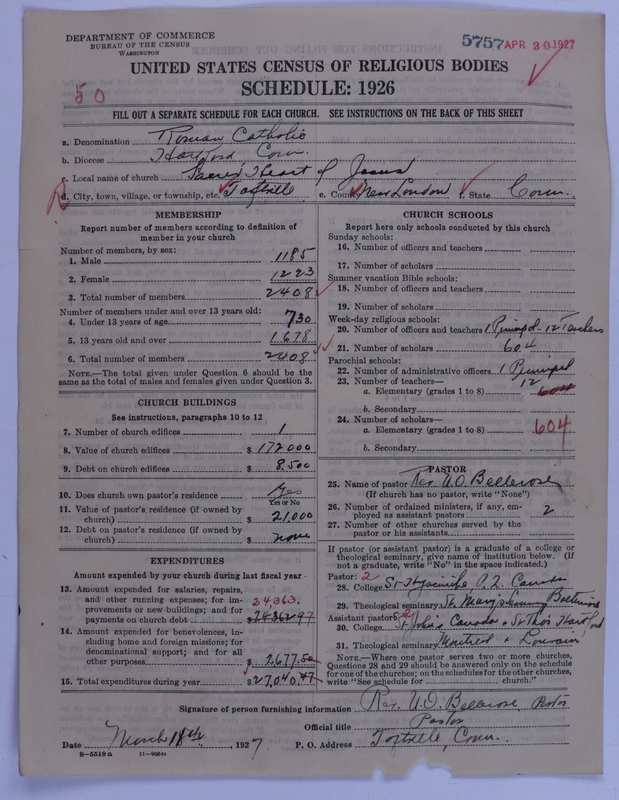 DEPARTMENT OF COMMERCE
BUREAU OF THE CENSUS
WASHINGTON
5757 APR 30 1927
UNITED STATES CENSUS OF RELIGIOUS BODIES
50
SCHEDULE: 1926
FILL OUT A SEPARATE SCHEDULE FOR EACH CHURCH. SEE INSTRUCTIONS ON THE BACK OF THIS SHEET
a. Denomination Roman Catholic
b. Diocese Hartford, Conn.
c. Local name of church Sacred Heart of Jesus
d. City, town, village, or township, etc. Taftville e. County New London f. State Conn.
MEMBERSHIP
Report number of members according to definition of member in your church
Number of members, by sex:
1. Male 1185
2. Female 1223
3. Total number of members 2408
Number of members under and over 13 years old:
4. Under 13 years of age 730
5. 13 years old and over 1.678
6. Total number of members 2408
NOTE.—The total given under Question 6 should be the
same as the total of males and females given under Question 3.
CHURCH BUILDINGS
See instructions, paragraphs 10 to 12
7. Number of church edifices 1
8. Value of church edifices $ 172000
9. Debt on church edifices $ 8.500
10. Does church own pastor's residence Yes
Yes or No
11. Value of pastor's residence (if owned by
church) $ 21,000
12. Debt on pastor's residence (if owned by
church) $ none
EXPENDITURES
Amount expended by your church during last fiscal year
13. Amount expended for salaries, repairs,
and other running expenses; for im-
provements or new buildings; and for
payments on church debt 24,363. $ 24362.97
14. Amount expended for benevolences, in-
cluding home and foreign missions; for
denominational support; and for all
other purposes $ 2,677.50
15. Total expenditures during year $ 27,040.47
CHURCH SCHOOLS
Report here only schools conducted by this church
Sunday schools:
16. Number of officers and teachers
17. Number of scholars
Summer vacation Bible schools:
18. Number of officers and teachers
19. Number of scholars
Week-day religious schools:
20. Number of officers and teachers 1 Principal - 12 Teachers
21. Number of scholars 604
Parochial schools:
22. Number of administrative officers 1 Principal
23. Number of teachers—
a. Elementary (grades 1 to 8) 12 604
b. Secondary
24. Number of scholars—
a. Elementary (grades 1 to 8) 604
b. Secondary
PASTOR
25. Name of pastor Rev. U.O. Bellerose
(If church has no pastor, write "None")
26. Number of ordained ministers, if any, em-
ployed as assistant pastors 2
27. Number of other churches served by the
pastor or his assistants
If pastor (or assistant pastor) is a graduate of a college or
theological seminary, give name of institution below. (If
not a graduate, write "No" in the space indicated.)
Pastor: 2
28. College St Hyacinthe P.Q. Canada
29. Theological seminary St. Mary's Seminary Baltimore
Assistant pastor: 2
30. College St John's Canada & St Thos Hartford
31. Theological seminary Montreal & Louvain
NOTE.—Where one pastor serves two or more churches,
Questions 28 and 29 should be answered only on the schedule
for one of the churches; on the schedules for the other churches,
write "See schedule for church."
Signature of person furnishing information Rev. U.O. Bellerose, Pastor
Official title Pastor
Date March 18th, 1927 P. O. Address Taftville, Conn.
8—5518a 11—9054a